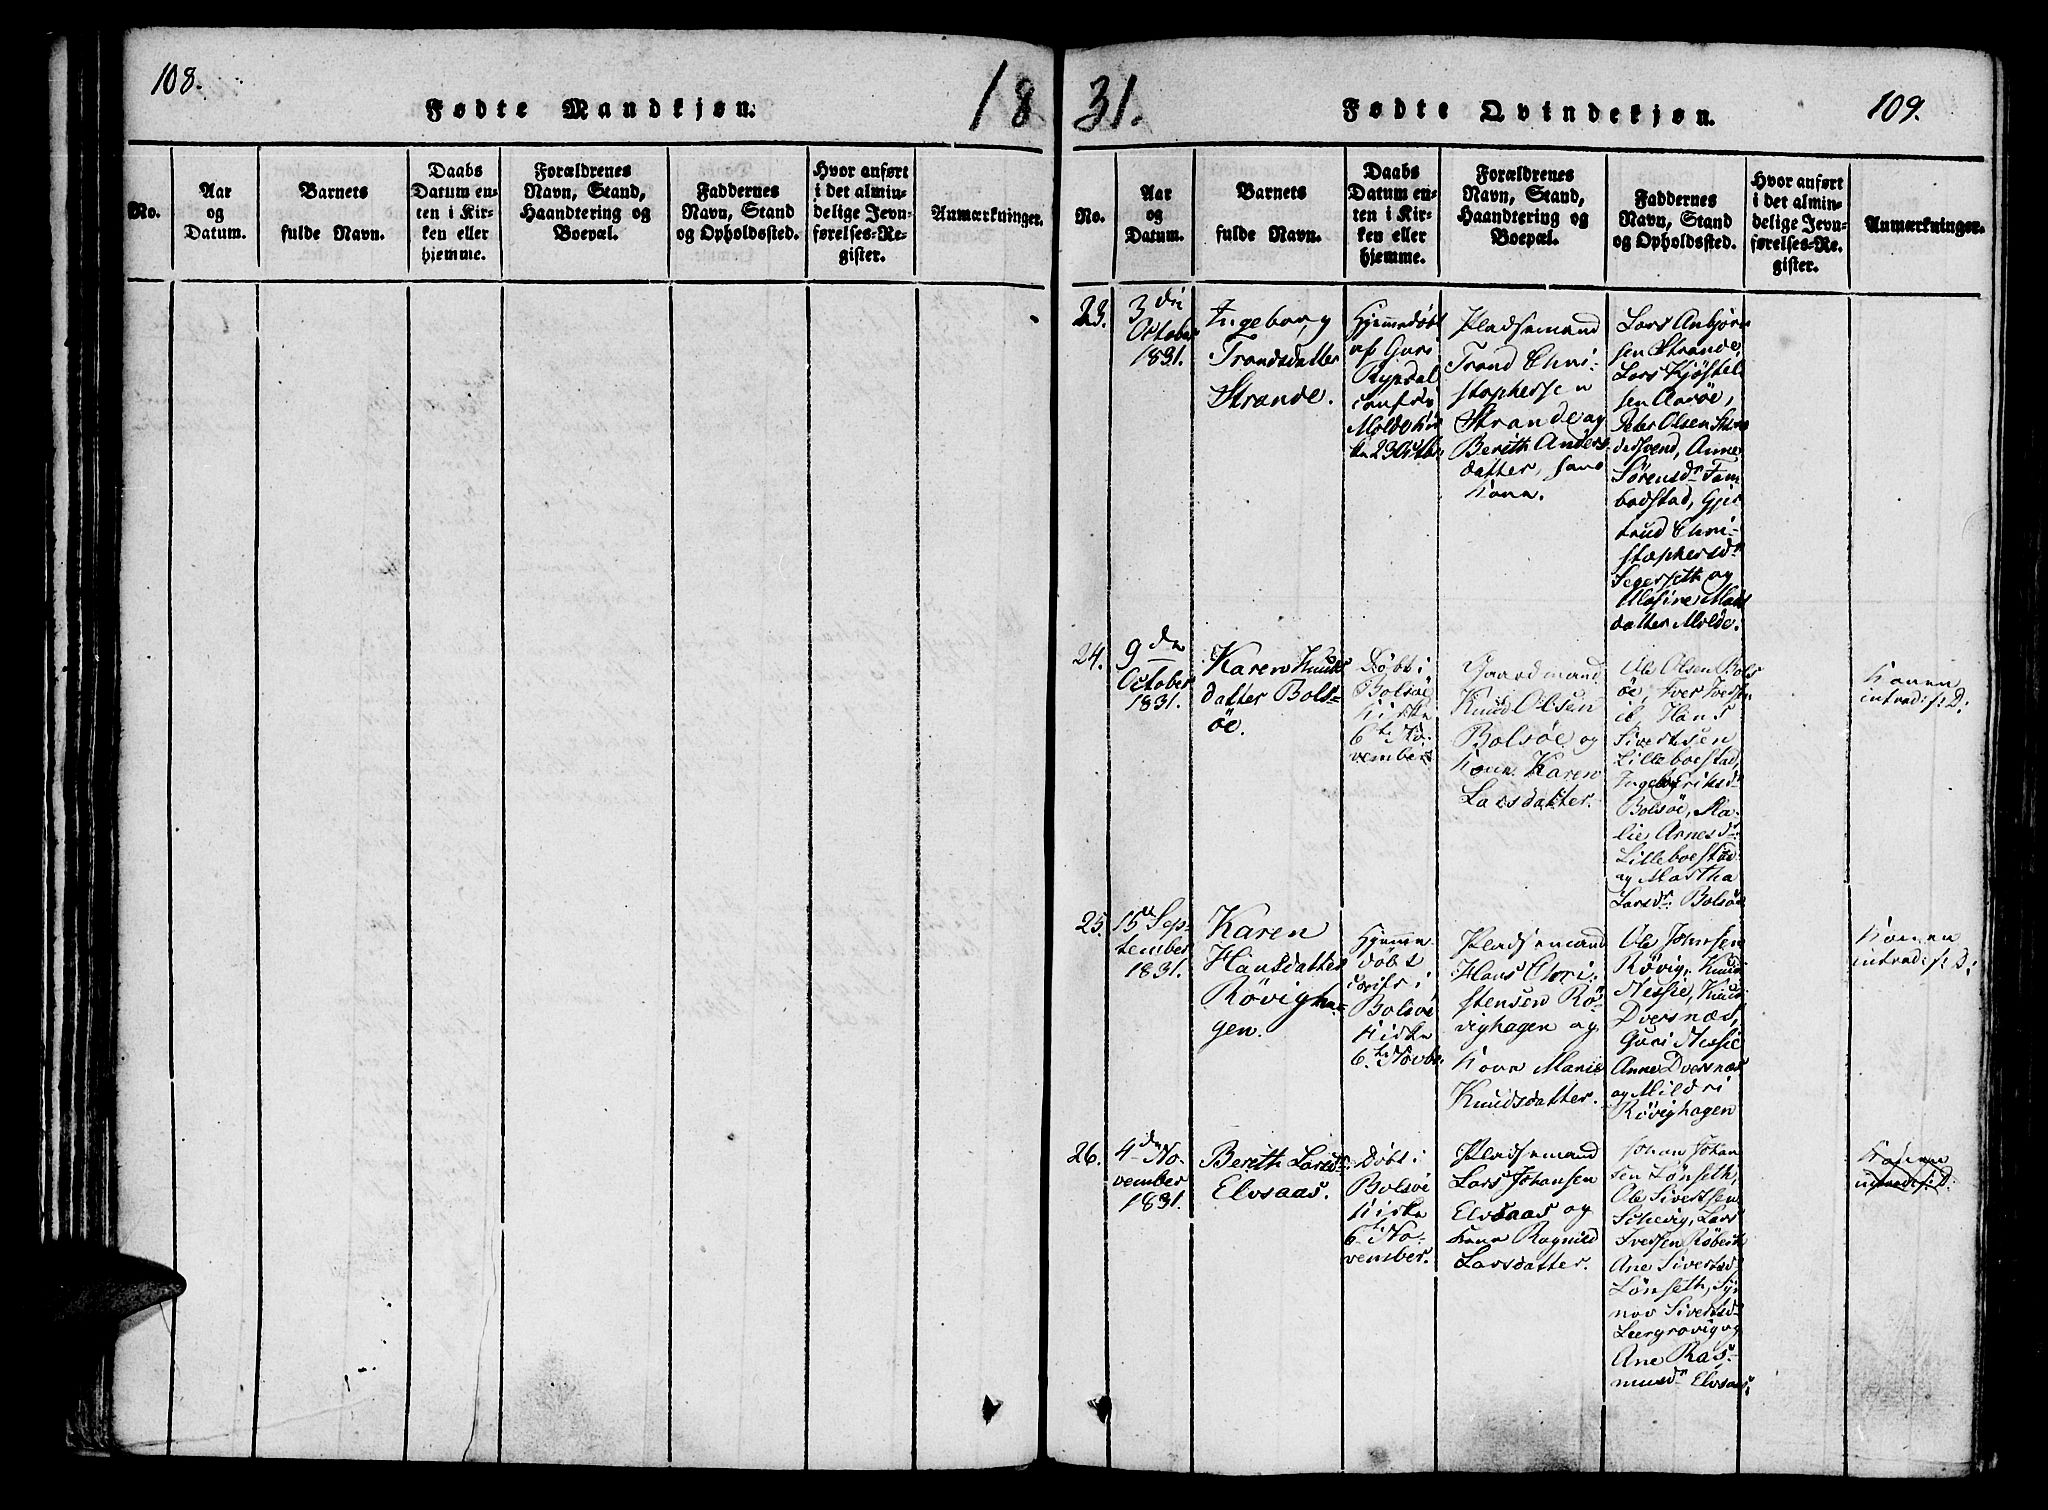 108.
Fødte Mandkjøn.
18
No.
Aar
og
Datum.
Barnets
fulde Navn.
Daabs
Datum en-
ten i Kir-
ken eller
hjemme.
Forældrenes
Navn, Stand,
Haandtering og
Boepæl.
Faddernes
Navn, Stand
og Opholdssted.
Hvor anført
i det almin-
delige Jevn-
førelses-Re-
gister.
Anmærkninger.
31.
Fødte Qvindekjøn.
109.
No.
Aar
og
Datum.
Barnets
fulde Navn.
Daabs
Datum en-
ten i Kir-
ken eller
hjemme.
Forældrenes
Navn, Stand,
Haandtering og
Boepæl.
Faddernes
Navn, Stand
og Opholdssted.
Hvor anført
i det almin-
delige Jevn-
førelses-Re-
gister.
Anmærkninger.
23.
3die
October
1831.
Ingeborg
Trondsdatter
Strande.
Hjemmedøbt
af Guri
Rypdal
conf: i
Molde Kir
ke 23 Octbr
Pladsemand
Trond Chri-
stophersen
Strande og
Berith Anders
datter, hans
Kone.
Lars Anbjørn
sen Strande,
Lars Kjöstel
sen Aaröe,
Peter Olsen
Anne
Sörensdr
Gjer
trud Chri-
stophersdr
Segerseth og
Mads
datter Molde.
24.
9de
October
1831.
Karen Knuds
datter Bols-
öe.
Döbt i
Bolsöe
Kirke
6te No-
vember
Gaardmand
Knud Olsen
Bolsöe og
Kone Karen
Larsdatter.
Ole Olsen Bols
öe, Iver Iversen
ib. Hans
Sivertsen
Lilleboestad,
Ingeb. Eriksdr
Bolsöe, Ma-
lie Arnesdr
Lilleboestad
og Martha
Larsdr: Bolsöe
Konen
introd: s: D:
25.
15de Sep-
tember
1831.
Karen
Hansdatter
Rövigha-
gen.
Hjemme
döbt
conf: i
Bolsöe
Kirke
6te Novbr.
Pladsemand
Hans Chri-
stensen Rö-
vighagen og
Kone Marie
Knudsdatter.
Ole Johnsen
Rövig, Knud
Nesjie, Knud
Dversnæs,
Guri Nesjie
Anne Dversnæs
og Mildri
Rövighagen
Konen
introd: s: D:
26.
4de No-
vember
1831.
Berith Larsdr
Elvsaas.
Döbt i
Bolsöe
Kirke
6te No-
vember.
Pladsemand
Lars Johansen
Elvsaas og
Kone Ragnild
Larsdatter.
Johan Johan
sen Lönseth,
Ole Sivertsen
Lars
Iversen
Ane Sivertsd
Lönseth, Sy
nov Sivertsdr
Leergrovig og
Ane Ras-
musdr Elvsaas.
Konen
introd: s: D: